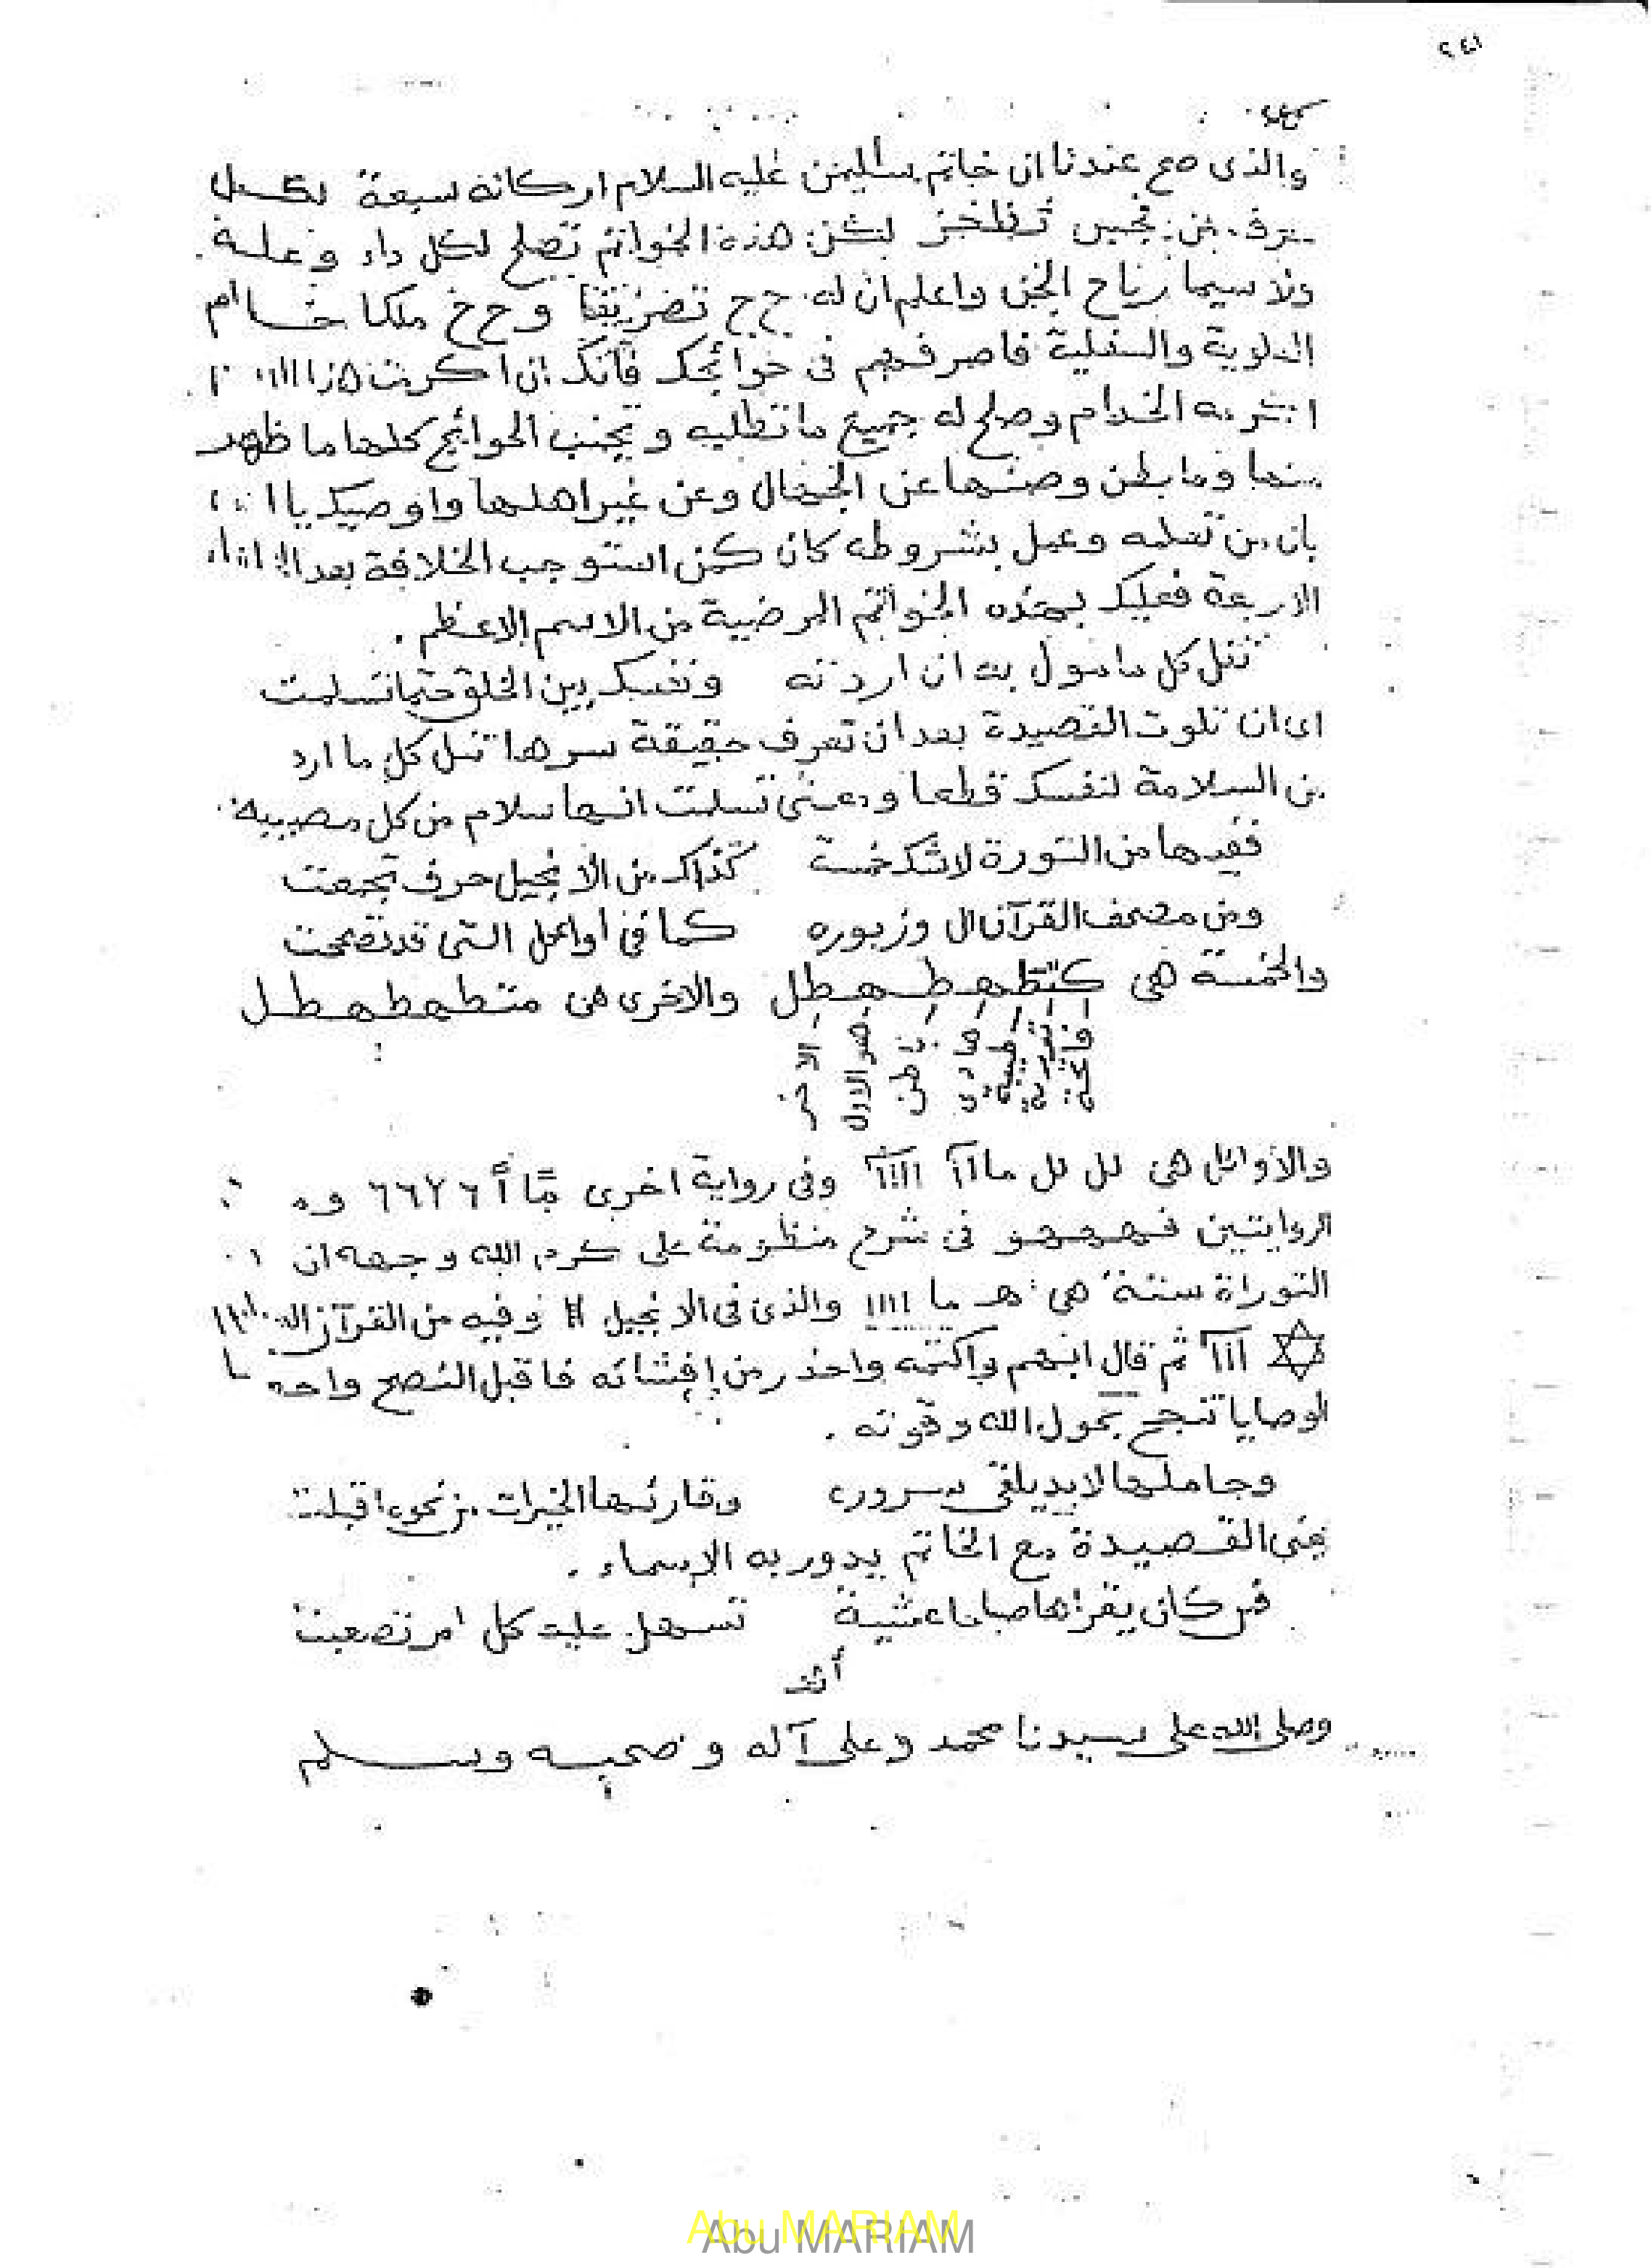 ٢٤١
والذى صح عندنا ان خاتم سليمن عليه السلام اركانه سبعة لكل
حرف من فجش ثظخز لكن هذه الخواتم تصلح لكل داء وعلة
ولا سيما رياح الجن واعلم ان له ح ح تصريفا و ح خ ملكا خدام
العلوية والسفلية فاصرفهم فى حوائجك فانك ان اكرمت هذا
الخدام وصلح له جميع ما تطلبه و الحوائج كلها ما ظهر
منها وما بطن وصنها عن الجهال وعن غير اهلها واوصيك يا
بان من تعلمه وعمل بشروطه كان كمن استوجب الخلافة بعد
الاربعة فعليك بهذه الخواتم المرضية من الاسم الاعظم .
تنل كل مامول به ان اردته ونفسك بين الخلق حتما تسلمت
اى ان تلوت القصيدة بعد ان تعرف حقيقة سرها تنل كل ما ارد
من السلامة لنفسك قطعا ومعنى تسلمت انها سلام من كل مصيبة
ففيها من التورة لا شك خمسة كذاك من الانجيل حرف تجمعت
ومن مصحف القرآن ال وزبوره كما فى اوائل التى قد تصححت
والخمسة هى كتظهطهطل والاخرى هى متطهطهطل
فاتحة
هادى
باطن
هو الاول
الاخر
والاوائل هى لل لل ما١١آ وفى رواية اخرى ٦٦٧٦
الروايتين فى شرح منظومة على كرم الله وجهه ان
التوراة ستة هى هـ ما ١١١١ والذى فى الانجيل # وفيه من القرآن
✡ ١١آ ثم قال ابهم واكتمه واحذر من إفشائه فاقبل النصح
الوصايا تنجح بحول الله وقوته .
وحاملها لا بد يلقى سروره وقارئها الخيرات من نحوه اقبلت
يعنى القصيدة مع الخاتم يدور به الاسماء .
فمن كان يقراها صباحا عشية تسهل عليه كل امر تصعبت
وصلى الله على سيدنا محمد وعلى آله وصحبه وسلم
Abu MARIAM
Abu MARIAM